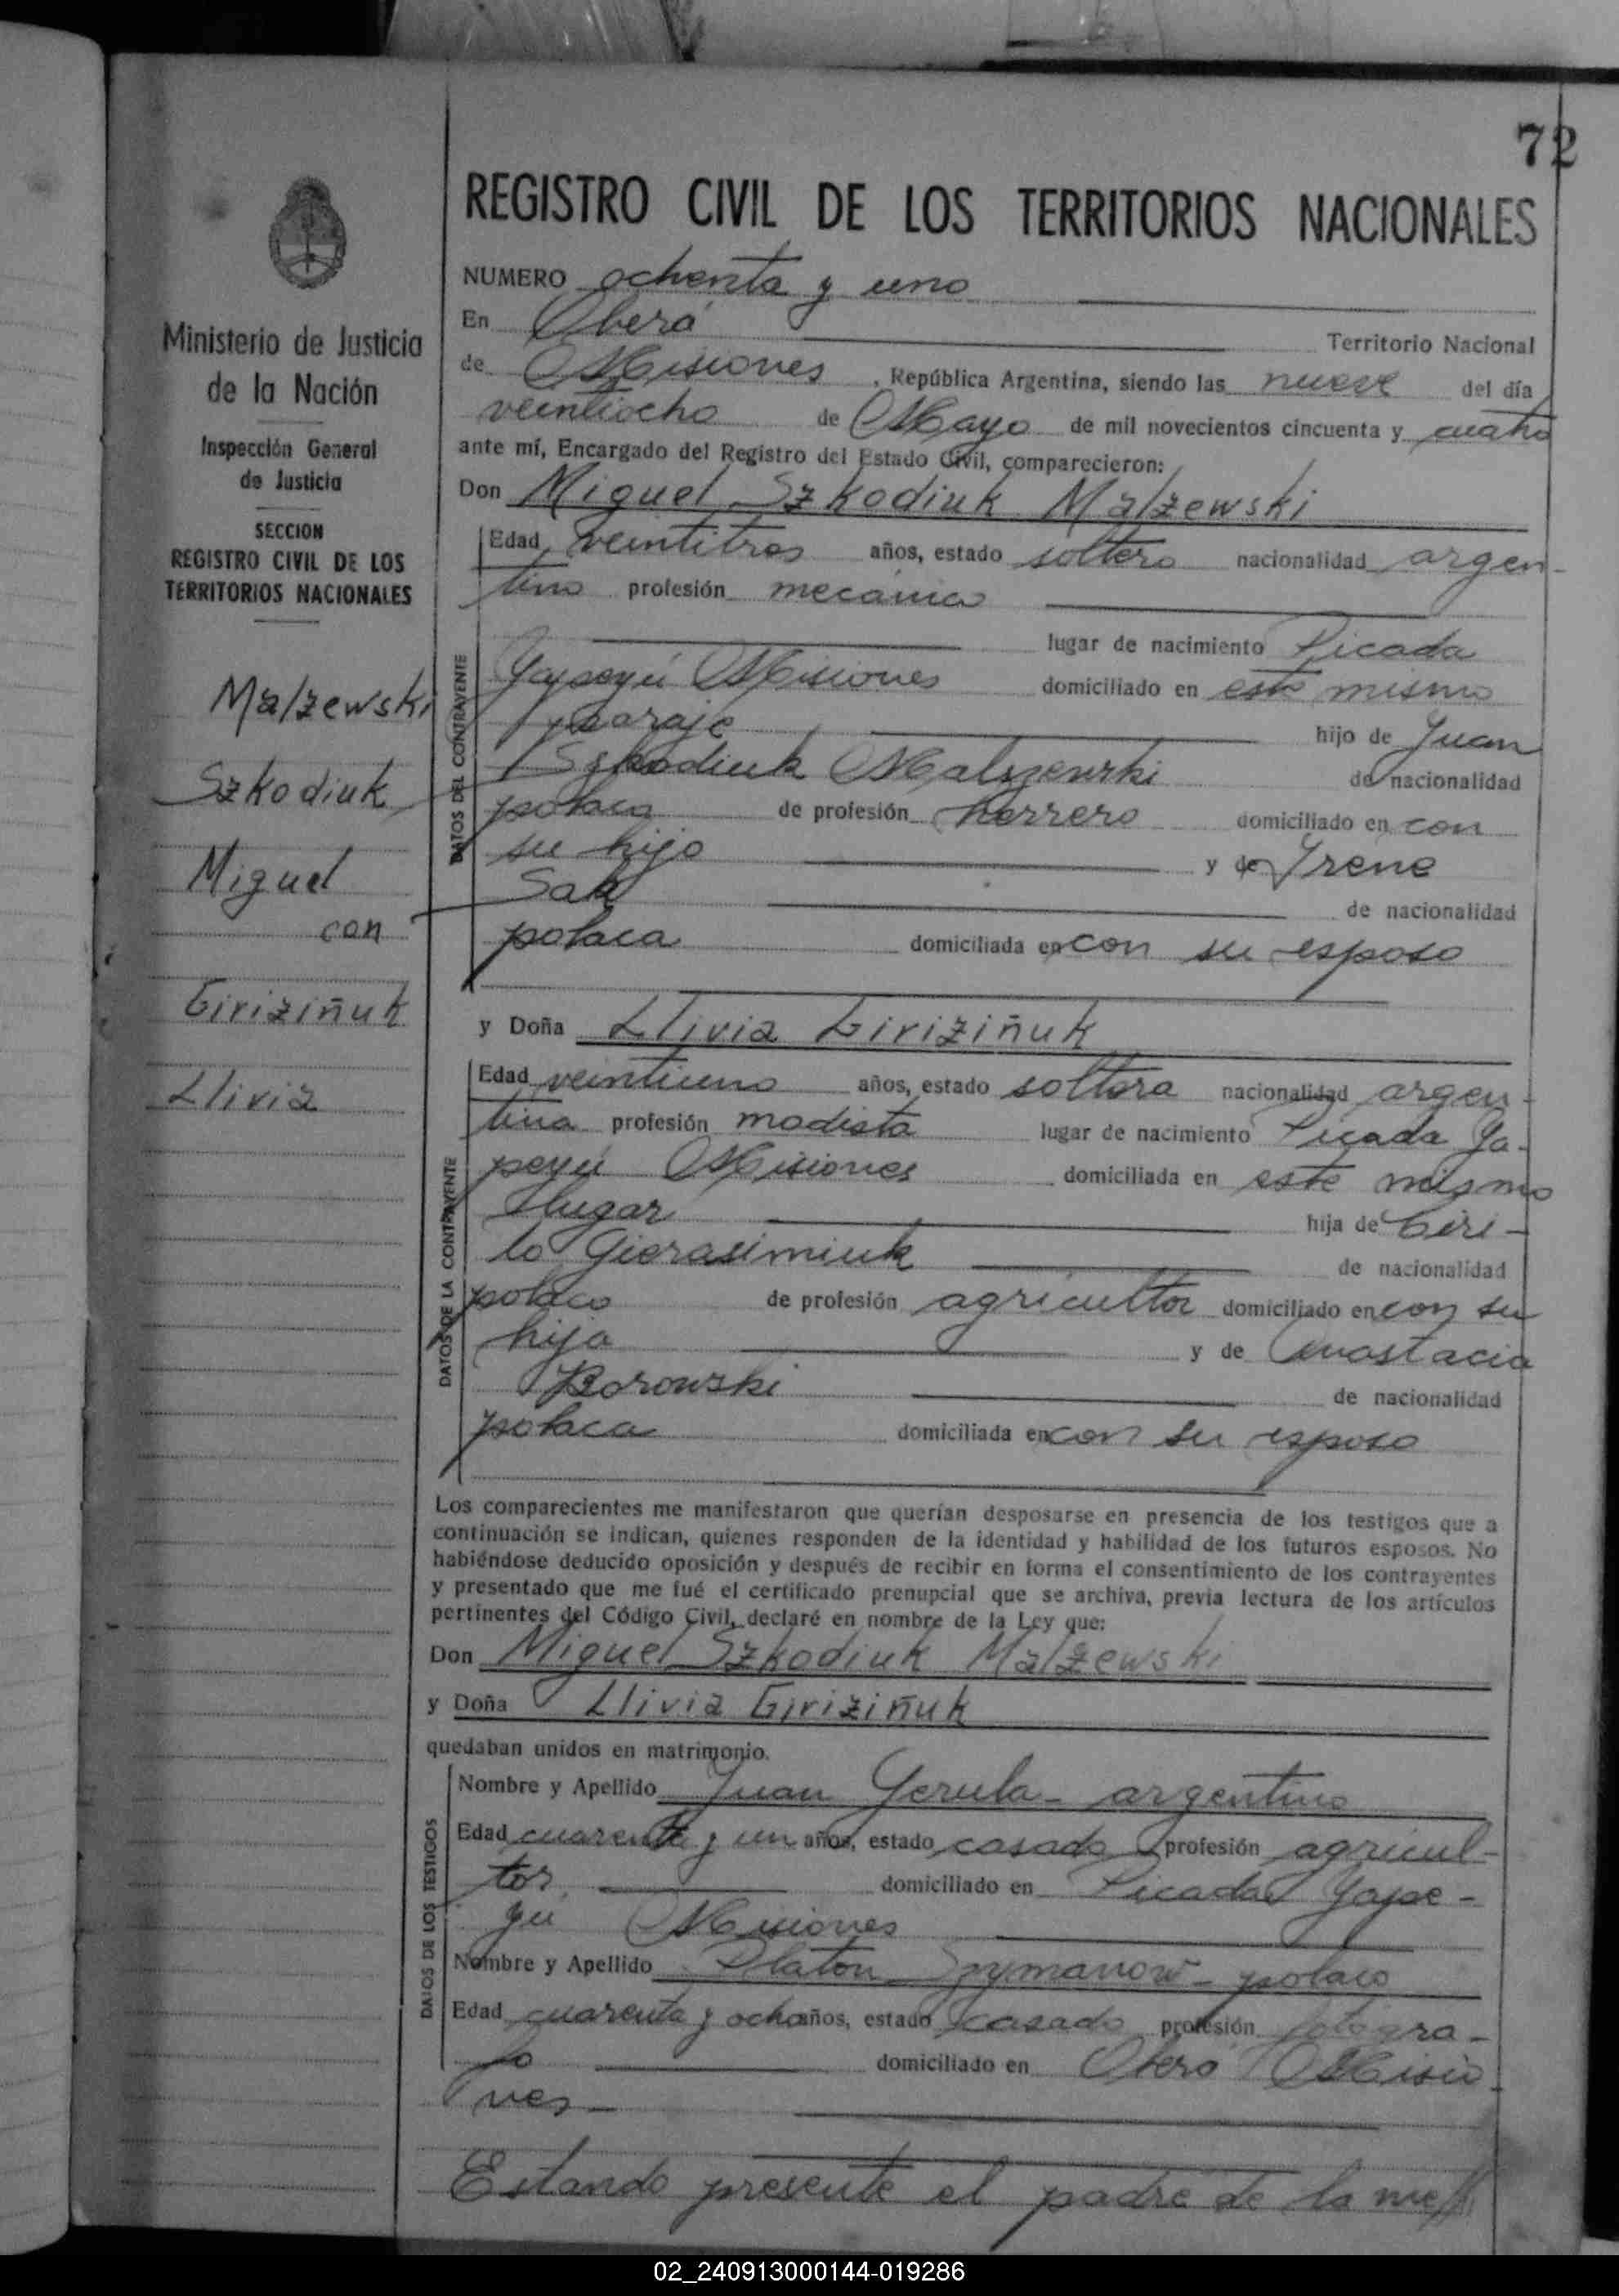 72
REGISTRO CIVIL DE LOS TERRITORIOS NACIONALES
Ministerio de Justicia
de la Nación
Inspección General
de Justicia
SECCION
REGISTRO CIVIL DE LOS
TERRITORIOS NACIONALES
Malzewski
Szkodiuk
Miguel
con
Giriziñuk
Llivia
NUMERO ochenta y uno
En Oberá Territorio Nacional
de Misiones, República Argentina, siendo las nueve del día
veintiocho de Mayo de mil novecientos cincuenta y cuatro
ante mí, Encargado del Registro del Estado Civil, comparecieron:
Don Miguel Szkodiuk Malzewski
DATOS DEL CONTRAYENTE
Edad veintitres años, estado soltero nacionalidad argen-
tino profesión mecánico
lugar de nacimiento Picada
Yapeyú Misiones domiciliado en este mismo
paraje hijo de Juan
Szkodiuk Malszewski de nacionalidad
polaca de profesión herrero domiciliado en con
su hijo y de Yrene
Sak de nacionalidad
polaca domiciliada en con su esposo
y Doña Llivia Giriziñuk
DATOS DE LA CONTRAYENTE
Edad veintiuno años, estado soltera nacionalidad argen-
tina profesión modista lugar de nacimiento Picada Ya-
peyú Misiones domiciliada en este mismo
lugar hija de Ciri-
lo Gierasimiuk de nacionalidad
polaco de profesión agricultor domiciliado en con su
hija y de Anastacia
Borowski de nacionalidad
polaca domiciliada en con su esposo
Los comparecientes me manifestaron que querían desposarse en presencia de los testigos que a
continuación se indican, quienes responden de la identidad y habilidad de los futuros esposos. No
habiéndose deducido oposición y después de recibir en forma el consentimiento de los contrayentes
y presentado que me fué el certificado prenupcial que se archiva, previa lectura de los artículos
pertinentes del Código Civil, declaré en nombre de la Ley que:
Don Miguel Szkodiuk Malzewski
y Doña Llivia Giriziñuk
quedaban unidos en matrimonio.
DATOS DE LOS TESTIGOS
Nombre y Apellido Juan Gerula - argentino
Edad cuarenta y un años, estado casado profesión agricul-
tor domiciliado en Picada Yape-
yú Misiones
Nombre y Apellido Platon Szymanow - polaco
Edad cuarenta y ocho años, estado casado profesión fotogra-
fo domiciliado en Oberá Misio-
nes -
Estando presente el padre de la
02_240913000144-019286